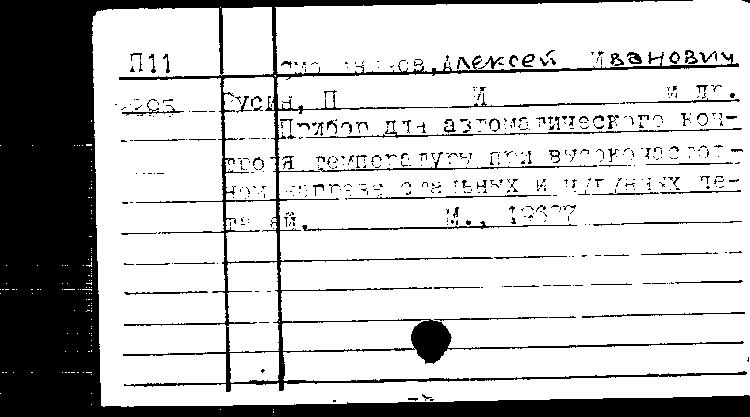 П11 Алексей Иванович
Русин, П И и др.
Прибор для автоматического кон-
троля температуры при высокочастот-
ном нагреве стальных и чугунных де-
талей. М.,